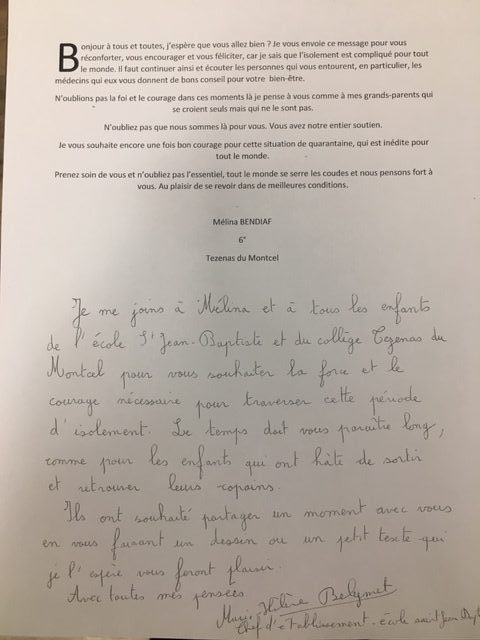 Bonjour à tous et toutes, j'espère que vous allez bien ? Je vous envoie ce message pour vous
réconforter, vous encourager et vous féliciter, car je sais que l'isolement est compliqué pour tout
le monde. Il faut continuer ainsi et écouter les personnes qui vous entourent, en particulier, les
médecins qui eux vous donnent de bons conseil pour votre bien-être.
N'oublions pas la foi et le courage dans ces moments là je pense à vous comme à mes grands-parents qui
se croient seuls mais qui ne le sont pas.
N'oubliez pas que nous sommes là pour vous. Vous avez notre entier soutien.
Je vous souhaite encore une fois bon courage pour cette situation de quarantaine, qui est inédite pour
tout le monde.
Prenez soin de vous et n'oubliez pas l'essentiel, tout le monde se serre les coudes et nous pensons fort à
vous. Au plaisir de se revoir dans de meilleures conditions.
Mélina BENDIAF
6°
Tezenas du Montcel
Je me joins à Mélina et à tous les enfants
de l'école St Jean-Baptiste et du collège Tezenas du
Montcel pour vous souhaiter la force et le
courage nécessaire pour traverser cette période
d'isolement. Le temps doit vous paraître long,
comme pour les enfants qui ont hâte de sortir
et retrouver leurs copains.
Ils ont souhaité partager un moment avec vous
en vous faisant un dessin ou un petit texte qui
je l'espère vous feront plaisir.
Avec toutes mes pensées
Marie Hélène
Chef d'établissement. école saint Jean